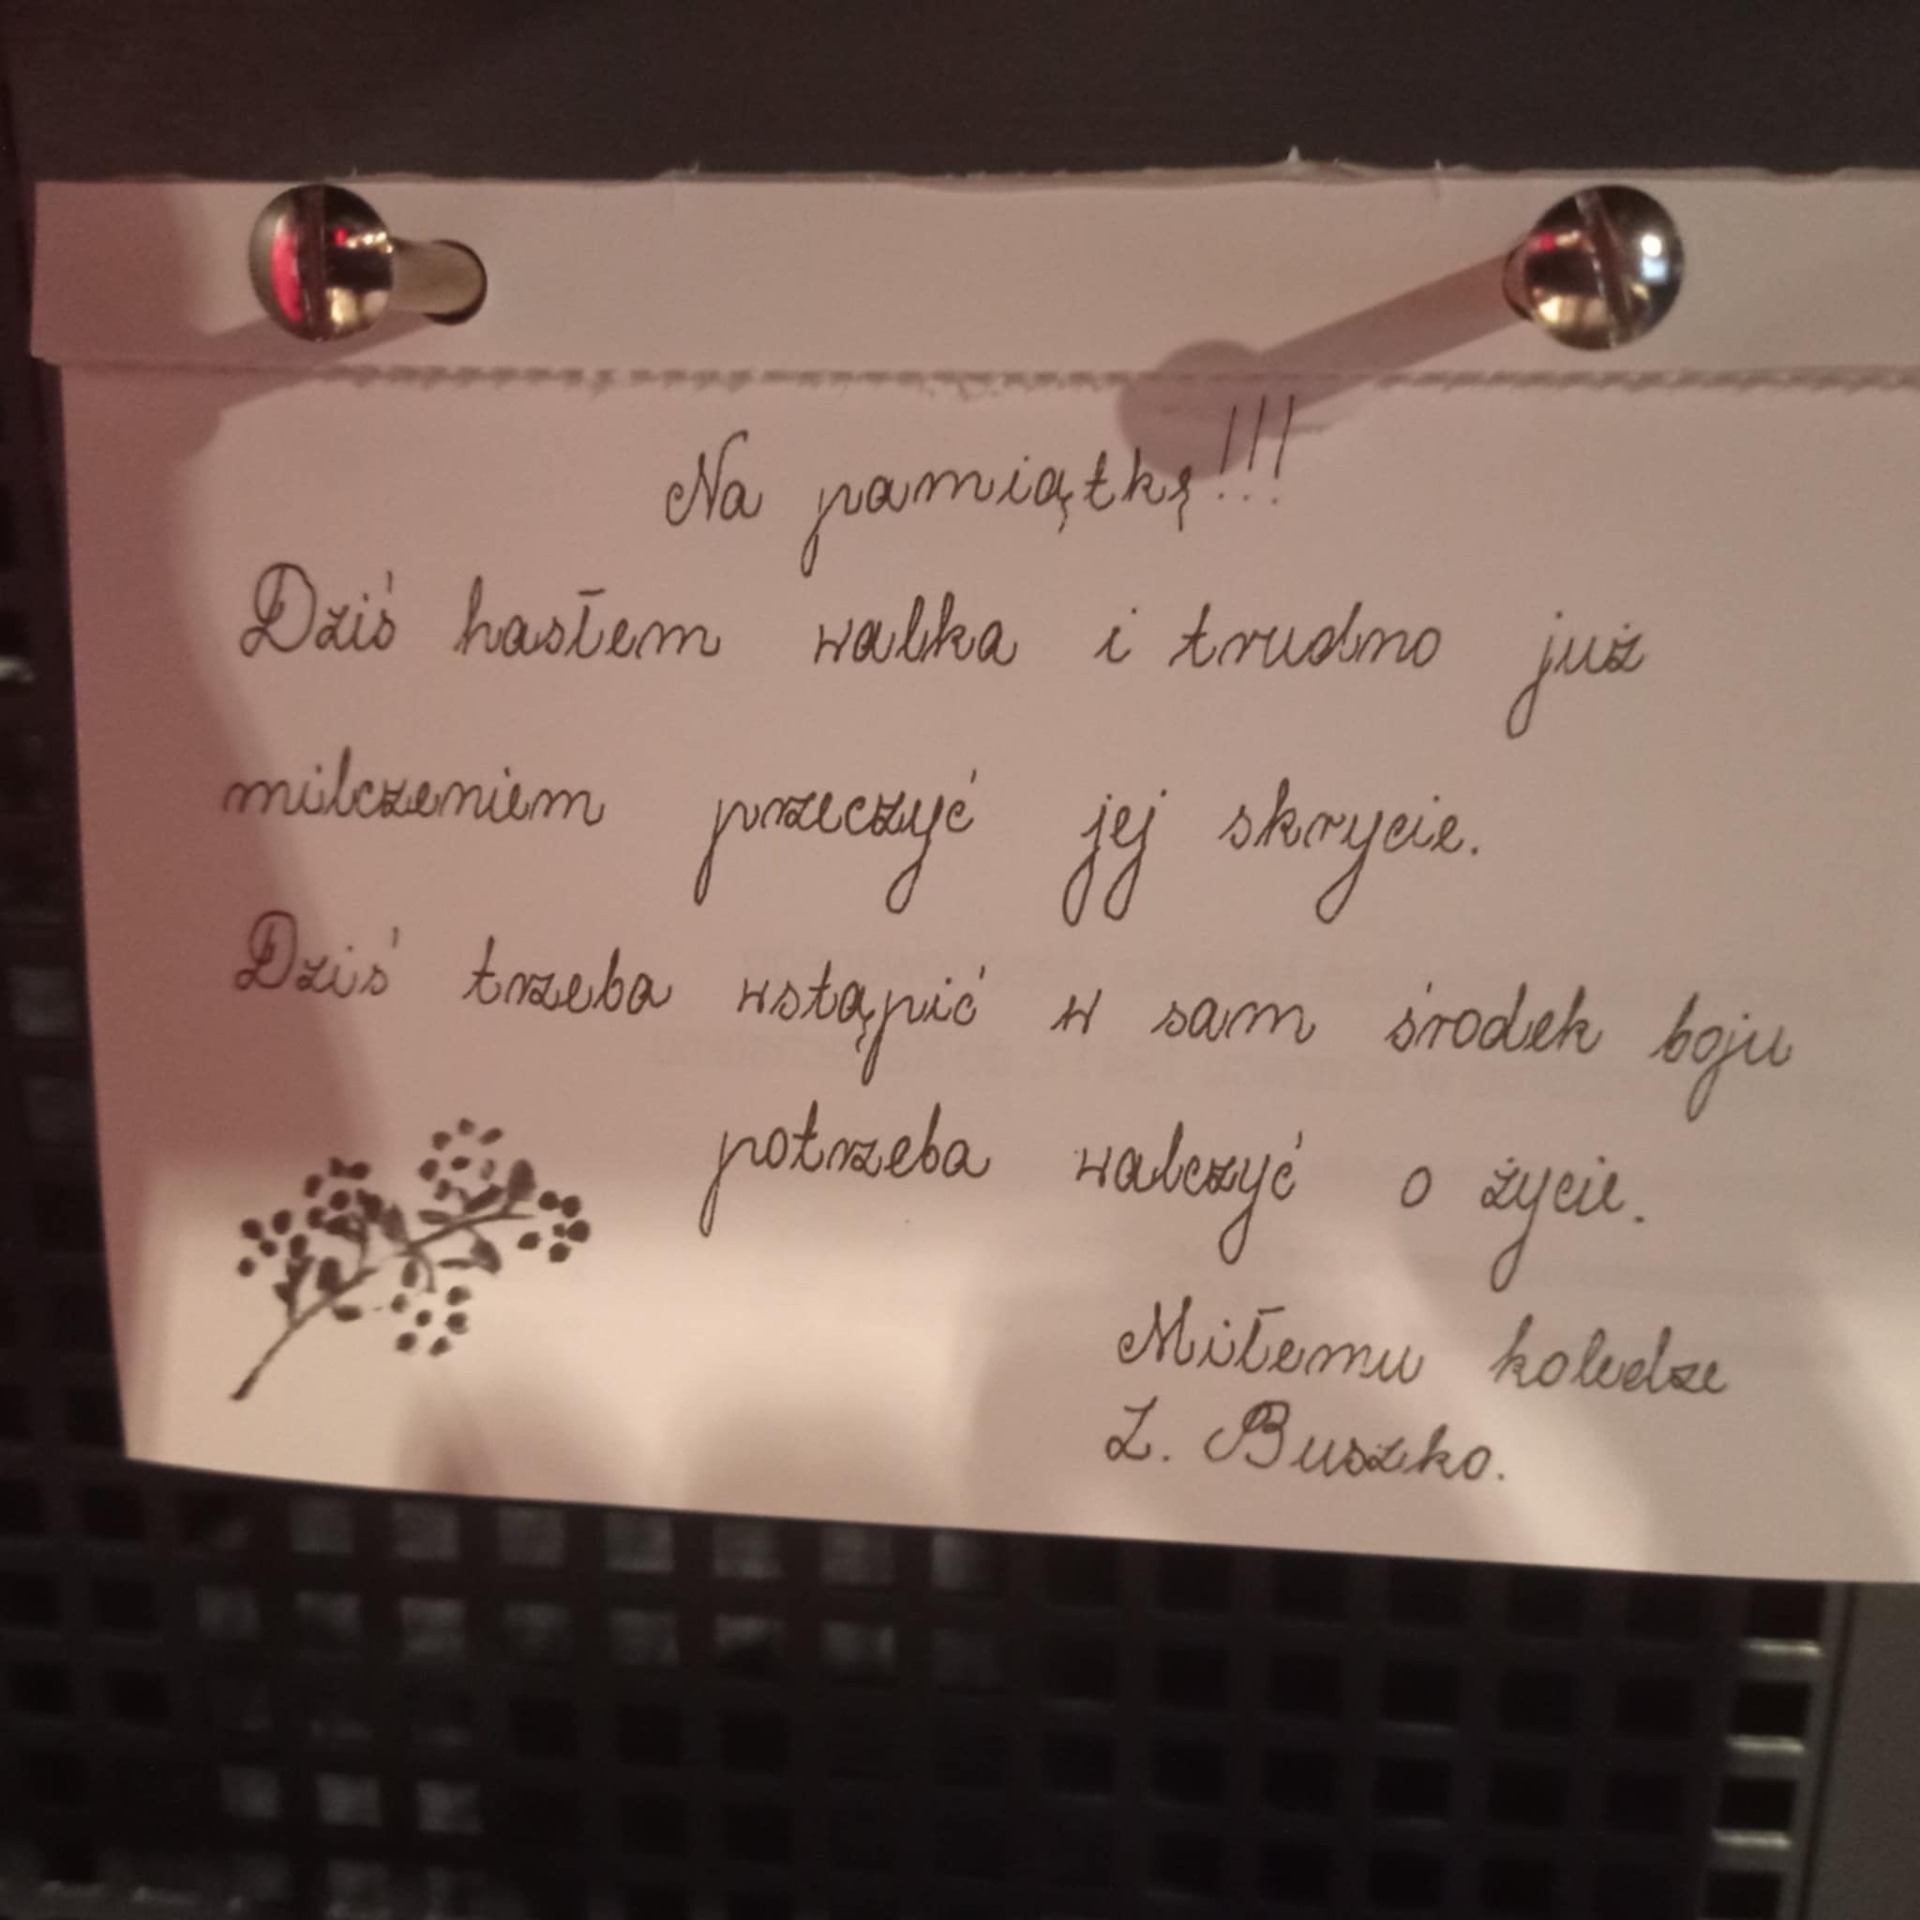 Na pamiątkę!!!
Dziś hasłem walka i trudno już
milczeniem przeczyć jej skrycie.
Dziś trzeba wstąpić w sam środek boju
potrzeba walczyć o życie.
Miłemu koledze
Z. Buszko.